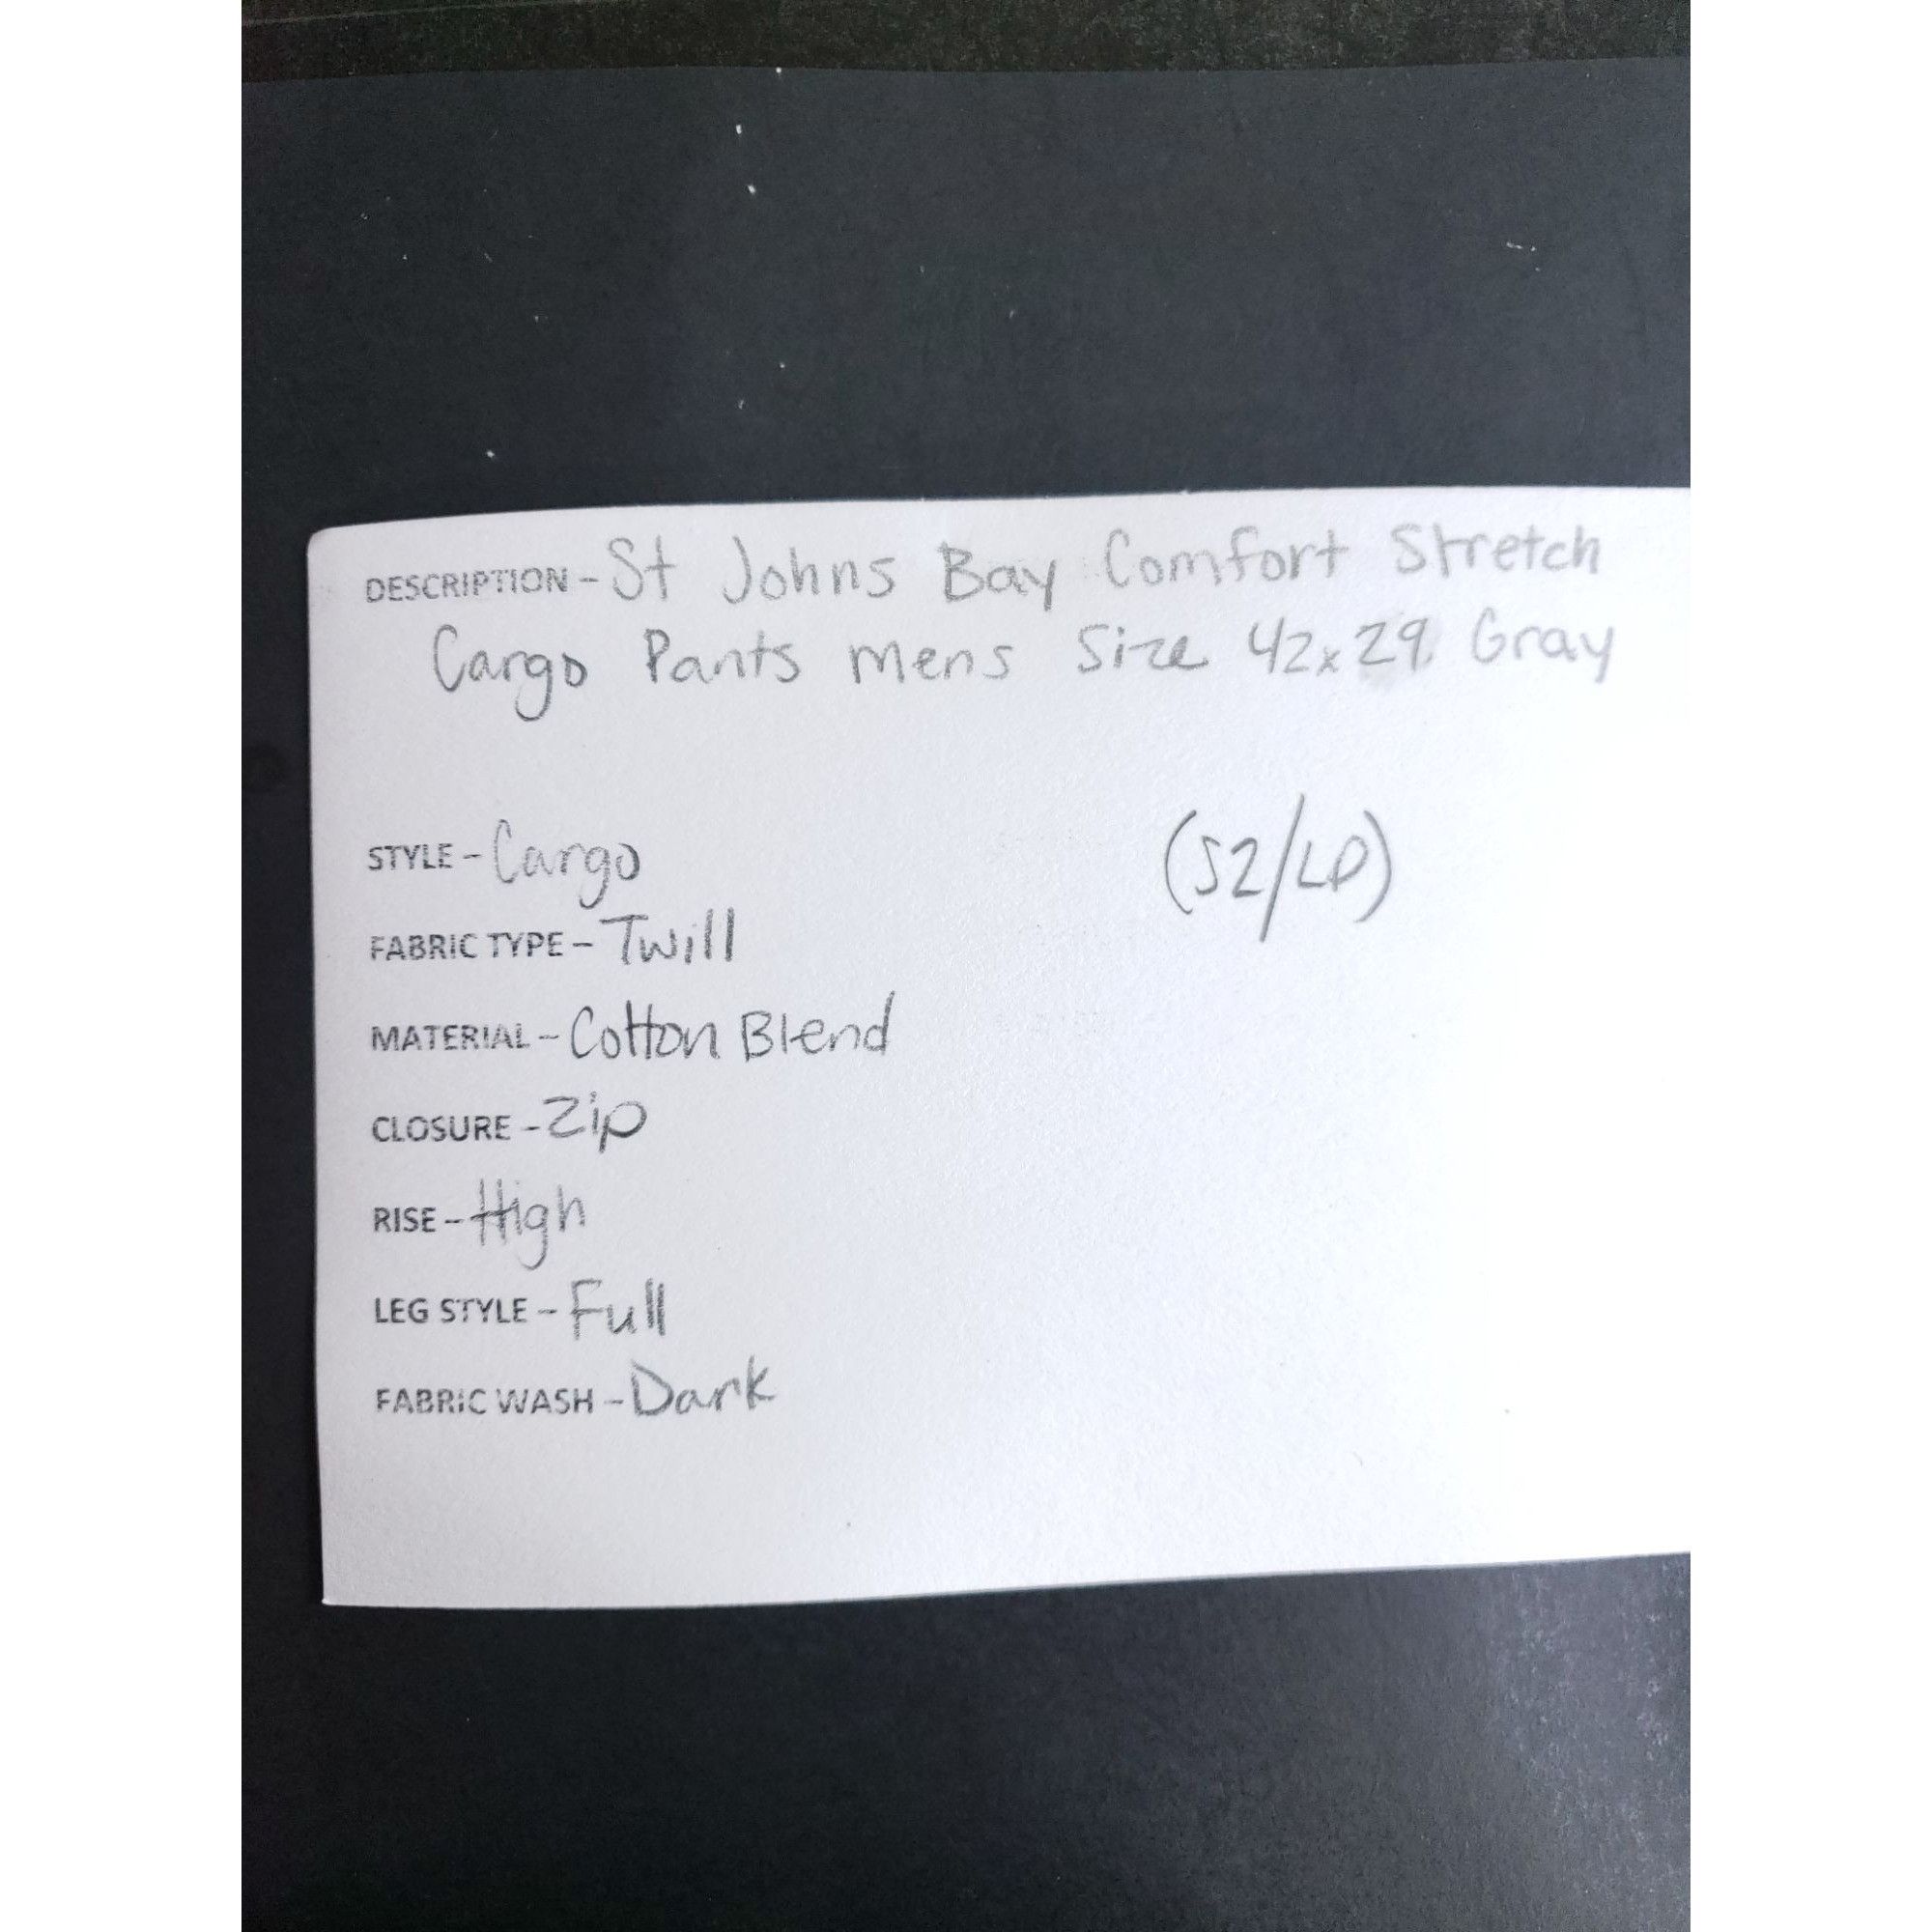 DESCRIPTION - St Johns Bay Comfort Stretch
Cargo Pants mens Size 42x29 Gray
STYLE - Cargo
(S2/LD)
FABRIC TYPE - Twill
MATERIAL - Cotton Blend
CLOSURE - Zip
RISE - High
LEG STYLE - Full
FABRIC WASH - Dark